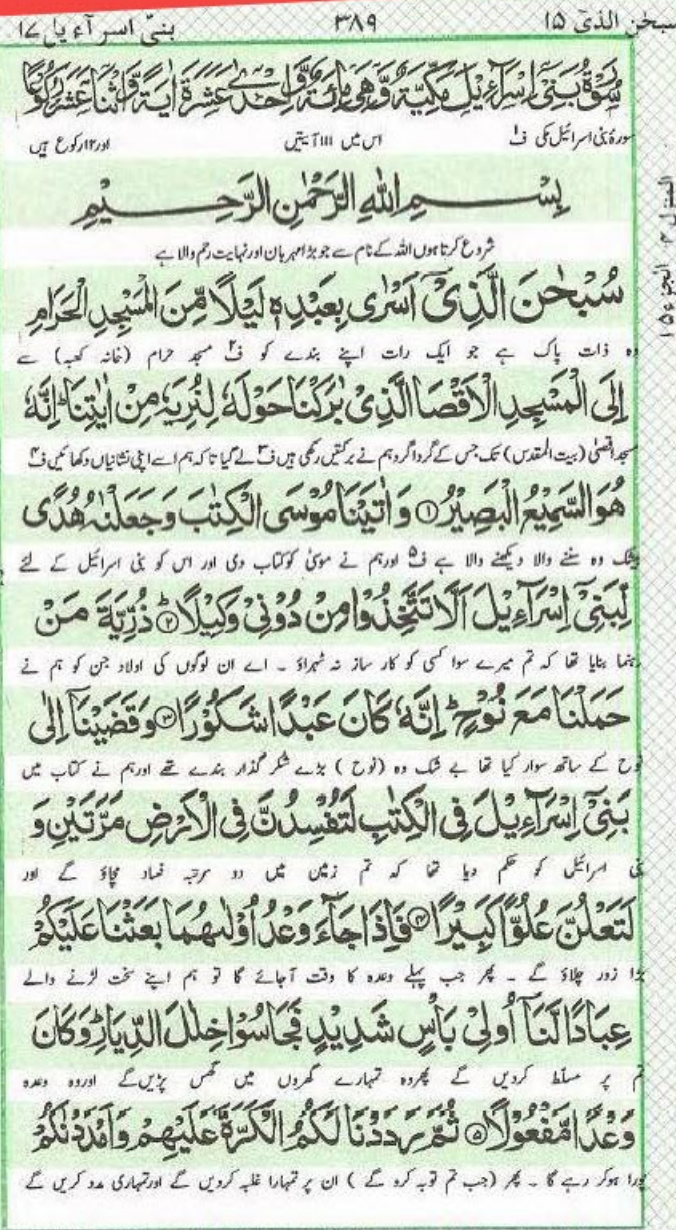 سبحٰن الذیٓ ١٥ ٣٨٩ بنیٓ اسرآءیل ١٧
سُوْرَةُ بَنِیْٓ اِسْرَآءِیْلَ مَكِّیَّةٌ وَّهِیَ مِائَةٌ وَّاِحْدٰی عَشَرَةَ اٰیَةً وَّاثْنَا عَشَرَ رُكُوْعًا
سورۂ بنی اسرائیل مکی ف۱ اس میں ۱۱۱ آیتیں اور ۱۲ رکوع ہیں
بِسْمِ اللّٰهِ الرَّحْمٰنِ الرَّحِیْمِ
شروع کرتا ہوں اللہ کے نام سے جو بڑا مہربان اور نہایت رحم والا ہے
سُبْحٰنَ الَّذِیْۤ اَسْرٰی بِعَبْدِهٖ لَیْلًا مِّنَ الْمَسْجِدِ الْحَرَامِ
وہ ذات پاک ہے جو ایک رات اپنے بندے کو ف۲ مسجد حرام (خانہ کعبہ) سے
اِلَی الْمَسْجِدِ الْاَقْصَا الَّذِیْ بٰرَكْنَا حَوْلَهٗ لِنُرِیَهٗ مِنْ اٰیٰتِنَا ؕ اِنَّهٗ
مسجد اقصٰی (بیت المقدس) تک جس کے گردا گرد ہم نے برکتیں رکھی ہیں ف۳ لے گیا تاکہ ہم اسے اپنی نشانیاں دکھائیں ف۴
هُوَ السَّمِیْعُ الْبَصِیْرُ ۝۱ وَ اٰتَیْنَا مُوْسَی الْكِتٰبَ وَ جَعَلْنٰهُ هُدًی
بیشک وہ سننے والا دیکھنے والا ہے ف۵ اور ہم نے موسیٰ کو کتاب دی اور اس کو بنی اسرائیل کے لئے
لِّبَنِیْۤ اِسْرَآءِیْلَ اَلَّا تَتَّخِذُوْا مِنْ دُوْنِیْ وَكِیْلًا ؕ۝۲ ذُرِّیَّةَ مَنْ
رہنما بنایا تھا کہ تم میرے سوا کسی کو کار ساز نہ ٹھہراؤ ۔ اے ان لوگوں کی اولاد جن کو ہم نے
حَمَلْنَا مَعَ نُوْحٍ ؕ اِنَّهٗ كَانَ عَبْدًا شَكُوْرًا ۝۳ وَ قَضَیْنَاۤ اِلٰی
نوح کے ساتھ سوار کیا تھا بے شک وہ (نوح) بڑے شکر گذار بندے تھے اور ہم نے کتاب میں
بَنِیْۤ اِسْرَآءِیْلَ فِی الْكِتٰبِ لَتُفْسِدُنَّ فِی الْاَرْضِ مَرَّتَیْنِ وَ
بنی اسرائیل کو حکم دیا تھا کہ تم زمین میں دو مرتبہ فساد مچاؤ گے اور
لَتَعْلُنَّ عُلُوًّا كَبِیْرًا ۝۴ فَاِذَا جَآءَ وَعْدُ اُوْلٰىهُمَا بَعَثْنَا عَلَیْكُمْ
بڑا زور چلاؤ گے ۔ پھر جب پہلے وعدہ کا وقت آجائے گا تو ہم اپنے سخت لڑنے والے
عِبَادًا لَّنَاۤ اُولِیْ بَاْسٍ شَدِیْدٍ فَجَاسُوْا خِلٰلَ الدِّیَارِ ؕ وَ كَانَ
تم پر مسلّط کردیں گے پھر وہ تمہارے گھروں میں گھس پڑیں گے اور وہ وعدہ
وَعْدًا مَّفْعُوْلًا ۝۵ ثُمَّ رَدَدْنَا لَكُمُ الْكَرَّةَ عَلَیْهِمْ وَ اَمْدَدْنٰكُمْ
پورا ہوکر رہے گا ۔ پھر (جب تم توبہ کرو گے) ان پر تمہارا غلبہ کردیں گے اور تمہاری مدد کریں گے
المنزل ٤ الجزء ١٥